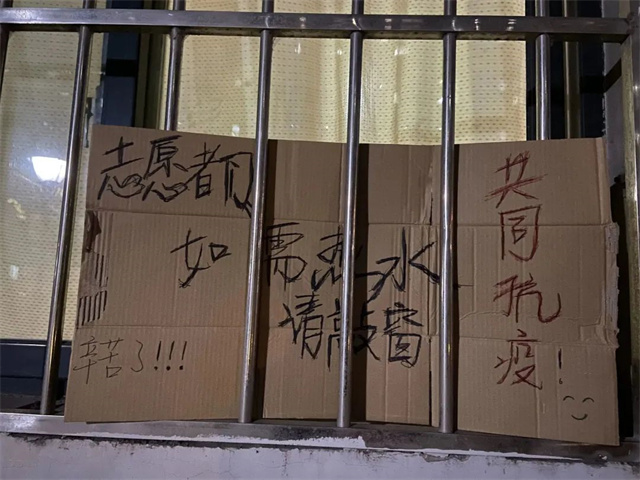 志愿者们
如需热水
请敲窗
辛苦了!!!
共同抗疫!